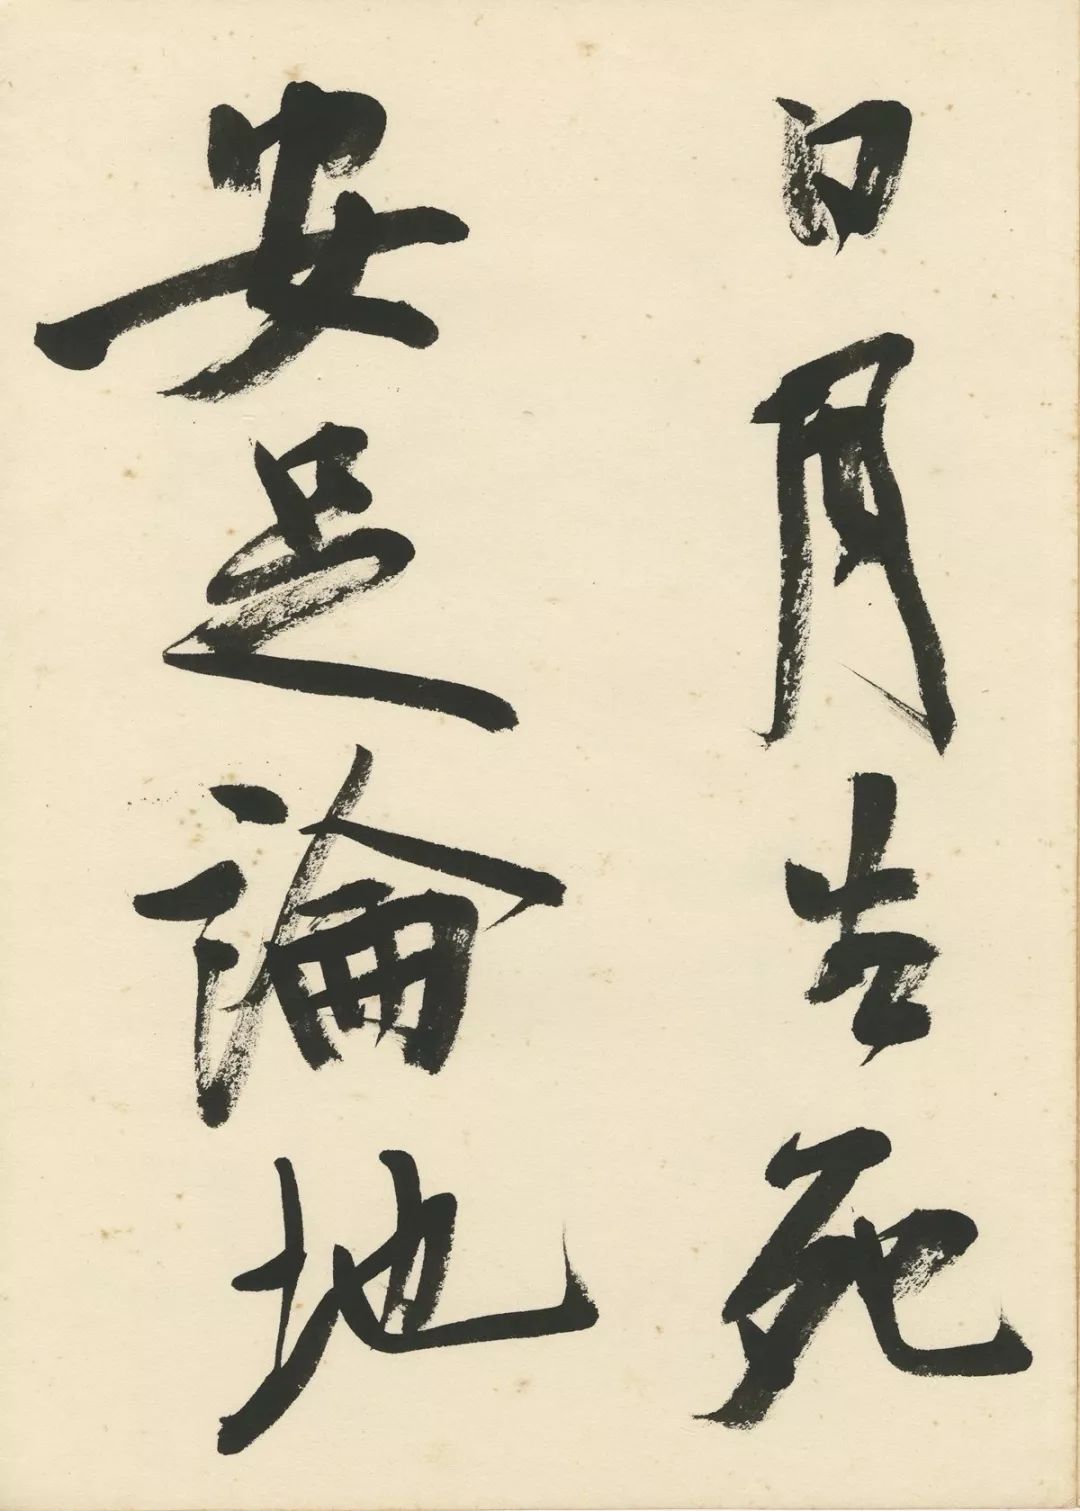 日月生死
安足論地